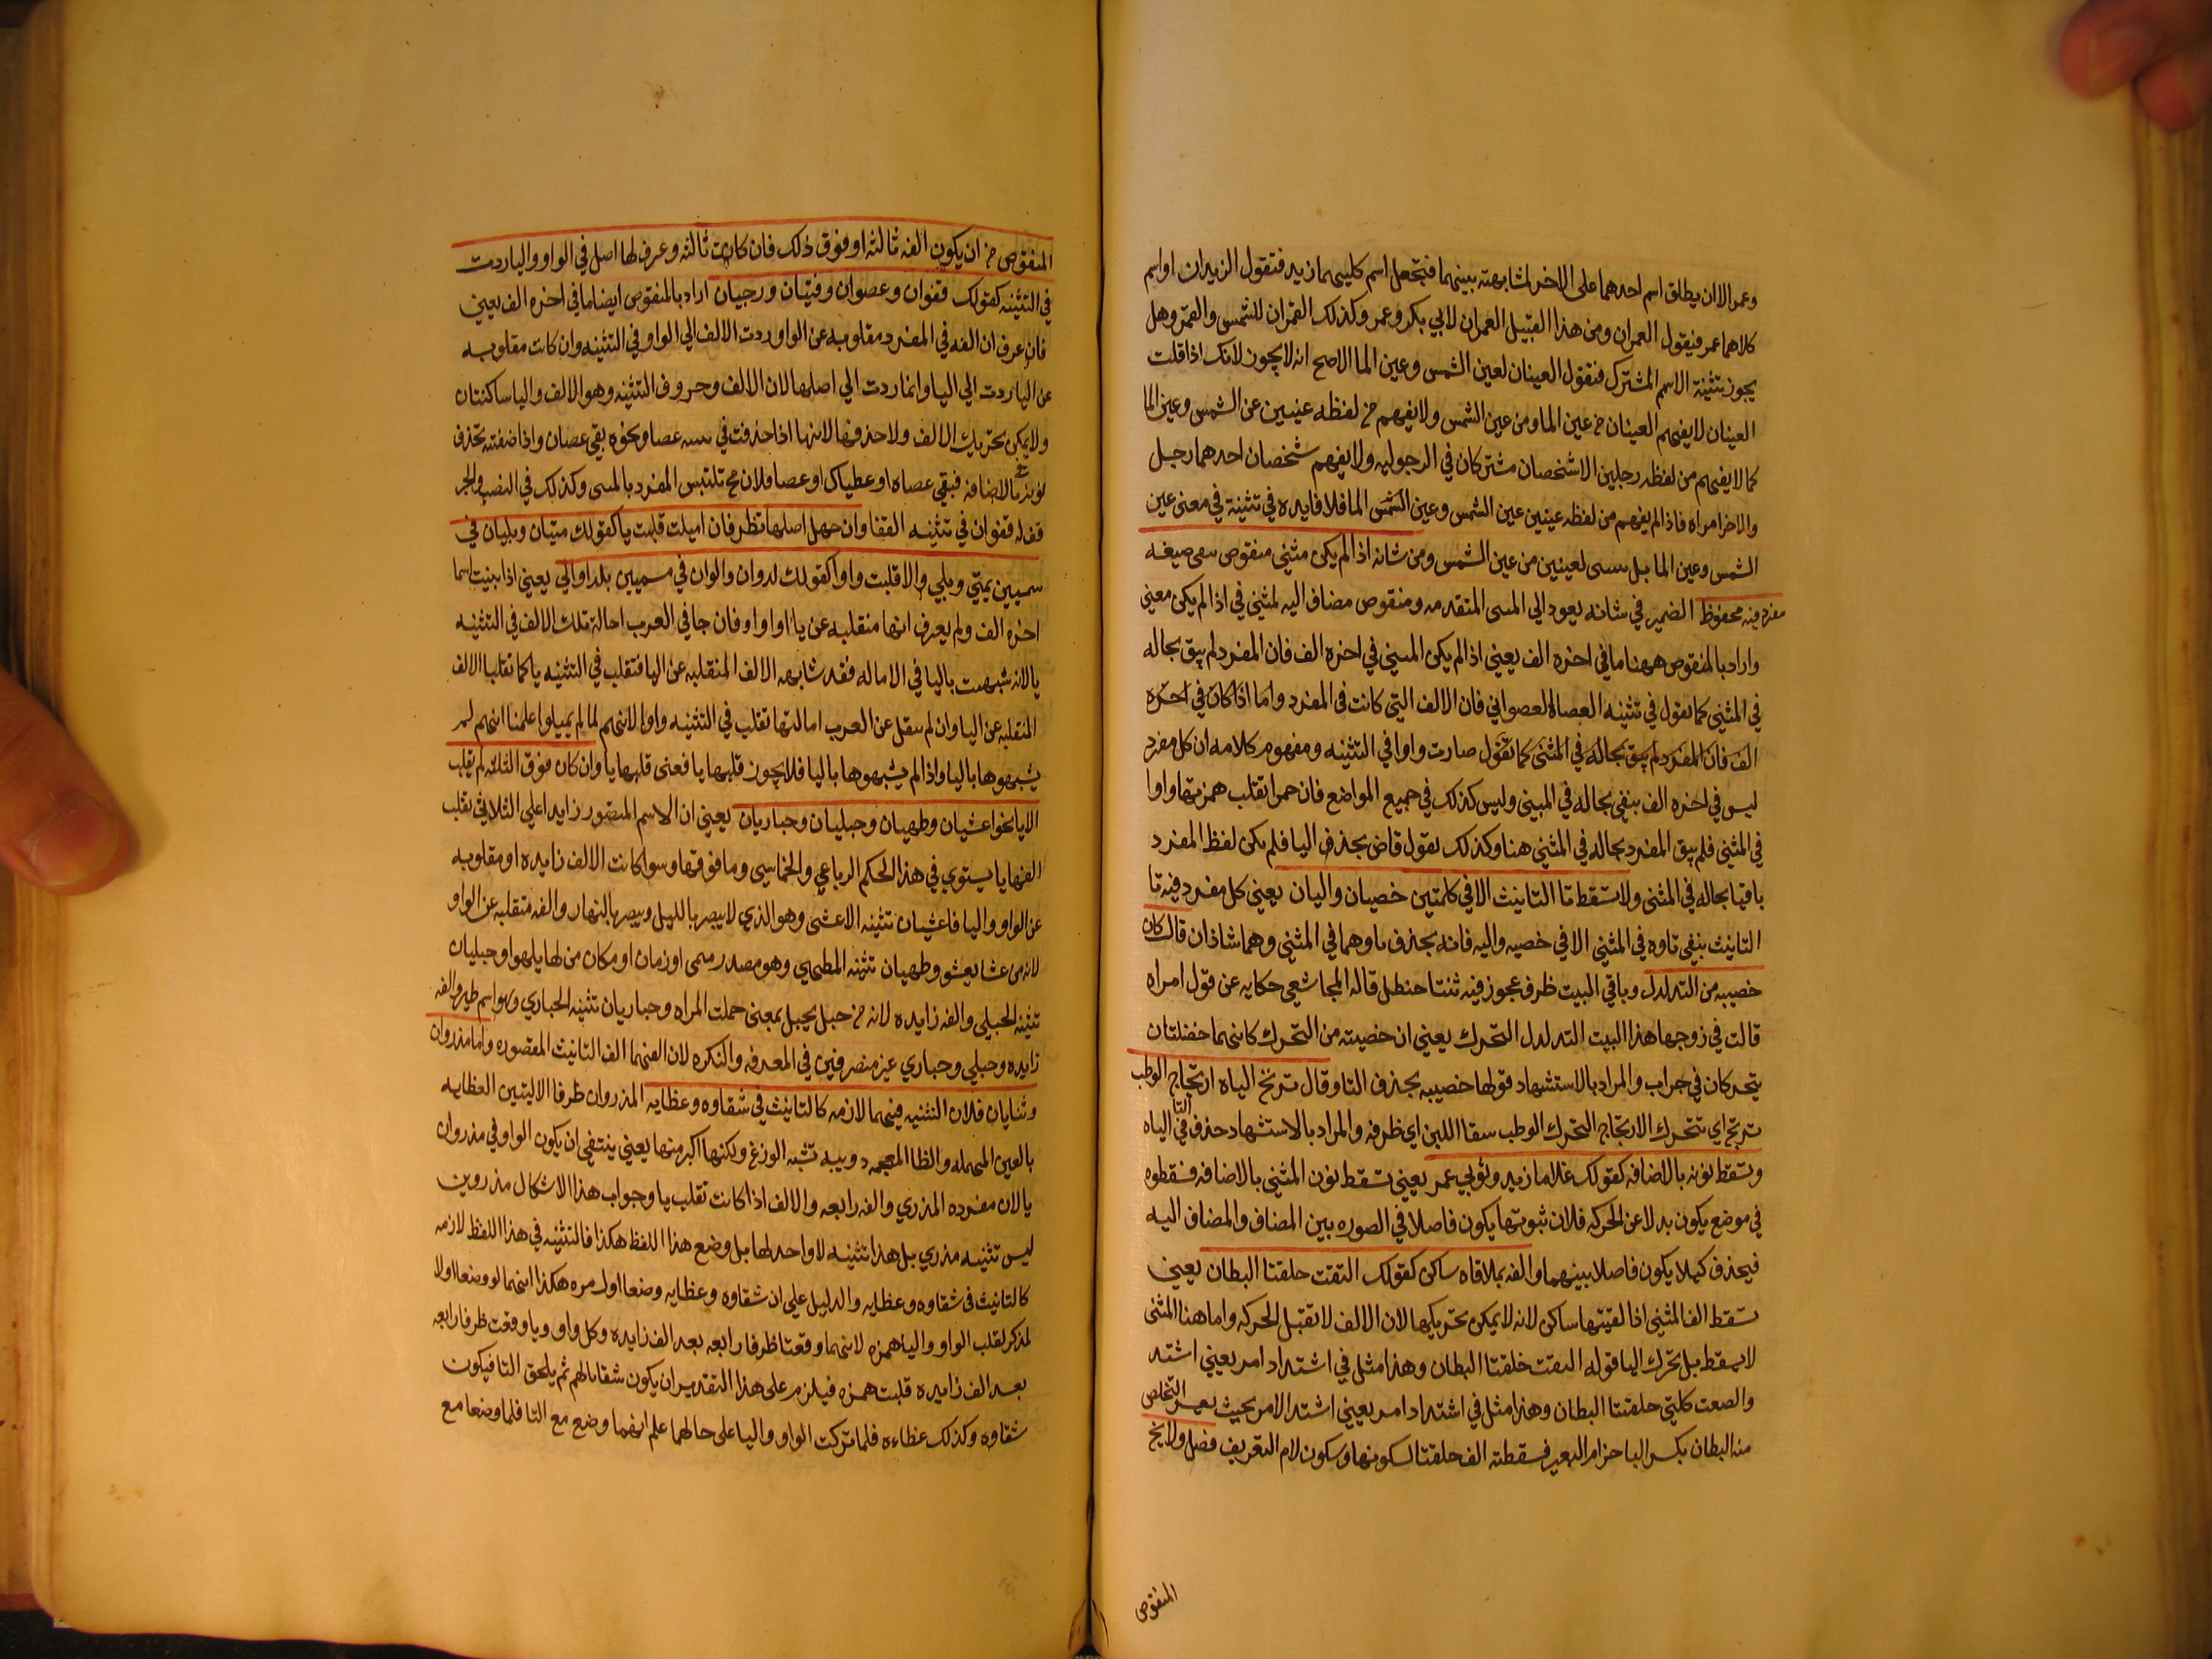 وعمر الا ان يطلق اسم احدهما على الاخر لمشابهته بينهما فتجعل اسم كليهما زيد فتقول الزيدان او اسم
كلاهما عمر فيقول العمران ومن هذا القبيل العمران لابي بكر وعمر وكذلك القمران للشمس والقمر وهل
يجوز تثنية الاسم المشترك فنقول العينان لعين الشمس وعين الما الاصح انه لا يجوز لانك اذا قلت
العينان لا يفهم العينان من عين الما ومن عين الشمس ولا يفهم من لفظه عينين عن الشمس وعين الما
كما لا يفهم من لفظه رجلين الا شخصان مشتركان في الرجوليه ولا يفهم شخصان احدهما رجل
والاخر امراه فاذا لم يفهم من لفظه عينين عين الشمس وعين الشمس الما فلا فايده في تثنية في معنى عين
الشمس وعين الما بل لعينين من عين الشمس ومن شانه اذا لم يكن مثني منقوص صيغه
مفرد فيه محفوظ الضمير في شانه يعود الى المتقدمه ومنقوص مضاف اليه لمثني في اذا لم يكن معني
واراد بالمنقوص ههنا ما في اخره الف يعني اذا لم يكن المبني في اخره الف فان المفرد لم يبق بحاله
في المثني كما نقول في تثنيه العصاة العصواني فان الالف التي كانت في المفرد واما اذا كان في اخره
الف فان المفرد لم يبق بحاله في المثني كما تقول صارت واوا في التثنيه ومفهوم كلامه ان كل مفرد
ليس في اخره الف ينفي بحاله في المبني وليس كذلك في جميع المواضع فان حمرا تقلب همزتها واوا
في المثني فلم يبق المفرد بحاله في المثني هنا وكذلك نقول قاض بحذف اليا فلم يكن لفظ المفرد
باقيا بحاله في المثني ولا تسقط تا التانيث الا في كلمتين خصيان واليان يعني كل مفرد فيه تا
التانيث ينفي تاوه في المثني الا في خصيه واليه فانه بحذف تاوهما في المثني وهما شاذان قال كان
خصييه من التدلدل وباقي البيت ظرف عجوز فيه ثنتا حنظل قاله المجاشعي حكايه عن قول امراه
قالت في زوجها هذا البيت التدلدل التحرك يعني ان خصيته من التحرك كانهما حنضلتان
يتحركان في جراب والمراد بالاستشهاد قولها خصييه بحذف التا وقال ترتج الياه ارتجاج الوطب
ترتج اي تتحرك الارتجاج التحرك الوطب سقا اللبن اي ظرفه والمراد بالاستشهاد حذف التا في الياه
وتسقط نونه بالاضافه كقولك غلاما زيد وثوبي عمر يعني تسقط نون المثني بالاضافه فسقطوه
في موضع يكون بدلا عن الحركه فلان ثبوتها يكون فاصلا في الصوره بين المضاف والمضاف اليه
فيحذف كيلا يكون فاصلا بينهما والفه بملاقاه ساكن كقولك التقت حلقتا البطان يعني
تسقط الف المثني اذا لقيتها ساكن لانه لا يمكن تحريكها لان الالف لا تقبل الحركه واما هنا المثني
لا يسقط بل تحرك اليا قوله التقت خلقتا البطان وهذا مثل في اشتداد امر يعني اشتد
والصعت كليتي حلقتتا البطان وهذا مثل في اشتداد امر يعني اشتد الامر بحيث يعسر التخلص
منه البطان بكسر البا حزام البعير فسقطته الف حلقتا لسكونها وسكون لام التعريف فصل ولا يخ
المنقوص
المنقوص من ان يكون الفه ثالثه او فوق ذلك فان كانت ثالثه وعرف لها اصل في الواو واليا ردت
في التثنيه كقولك قفوان وعصوان وفتيان ورحيان اراد بالمنقوص ايضا ما في اخره الف يعني
فان عرف ان الفه في المفرد مقلوبه عن الواو ردت الالف الي الواو في التثنيه وان كانت مقلوبه
عن اليا ردت الي اليا وانما ردت الي اصلها لان الالف وحروف التثنيه وهو الالف واليا ساكنتان
ولا يمكن تحريك الالف ولا حذفها لانها اذا حذفت في عصا ونحوه بقي عصان واذا اضفته تحذف
نونه بالاضافه فبقي عصاه او عطياك او عصا فلان مح تلتبس المفرد بالمثنى وكذلك في النصب والجر
فقله قفوان في تثنيه القفا وان جهل اصلها تظر فان اميلت قلبت يا كقولك متيان وبليان في
سميين بمتي وبلي والا قلبت واوا كقولك لدوان والوان في مسميين بلدا والي يعني اذا بنيت اسما
اخره الف ولم يعرف انها منقلبه عن يا او واو فان جا في العرب احالة تلك الالف في التثنيه
يا لانه شبهت باليا في الاماله فقد شابهه الالف المنقلبه عن الها فتقلب في التثنيه يا كما تقلب الالف
المنقلبه عن اليا وان لم ينقل عن العرب امالتها تقلب في التثنيه واوا لانهم لما لم يميلوا علمنا انهم لم
يشبهوها باليا واذا لم يشبهوها باليا فلا يجوز قلبها يا فعنى قلبها يا وان كان فوق الثلثه لم يقلب
الا يا نحو اعشيان وطهيان وحبليان وحباريان يعني ان الاسم المقصور زايدا علي الثلاثي تقلب
الفها يا يستوي في هذا الحكم الرباعي والخماسي وما فوقها وسوا كانت الالف زايده او مقلوبه
عن الواو واليا فاعشيان تثنيه الاعشي وهو الذي لا يبصر بالليل ويبصر بالنهار والفه متقلبه عن الواو
لانه من عشا يعشو وطهيان تثنيه المطهي وهو مصدر ميمي او زمان او مكان من لها يلهو او حبليان
تثنيه الحبلي والفه زايده لانه من حبل يحبل بمعنى حملت المراه وحباريان تثنيه الحباري وهو اسم طير والفه
زايده وحبلي وحباري غير منصرفين في المعرفه والنكره لان الفهما الف التانيث المقصوره واما مذروان
وثنايان فلان التثنيه فيهما لازمه كالتانيث في شقاوه وعظايه المذروان طرفا الاليتين العظايه
بالعين المهمله والظا المعجمه دويبه تشبه الوزغ ولكنها اكبر منها يعني ينتفي ان يكون الواو في مذروان
يا لان مفرده المذري والفه رابعه والالف اذا كانت تقلب يا وجواب هذا الاشكال مذروين
ليس تثنيه مذري بل هذا تثنيه لا واحد لها بل وضع هذا اللفظ هكذا فالتثنيه في هذا اللفظ لازمه
كالتانيث في شقاوه وعظايه والدليل علي ان شقاوه وعظايه وضعا اول مره هكذا انهما لو وضعا اولا
لمذكر لقلب الواو واليا همزه لانهما وقعتا ظرفا رابعه بعد الف زايده وكل واو ويا وقعت ظرفا رابعه
بعد الف زايده قلبت همزه فيلزم على هذا التقدير ان يكون شقا لهم ثم يلحق التا فيكون
شقاوه وكذلك عظاءه فلما تركت الواو واليا على حالهما علم انهما وضع مع التا فلما وضعا مع